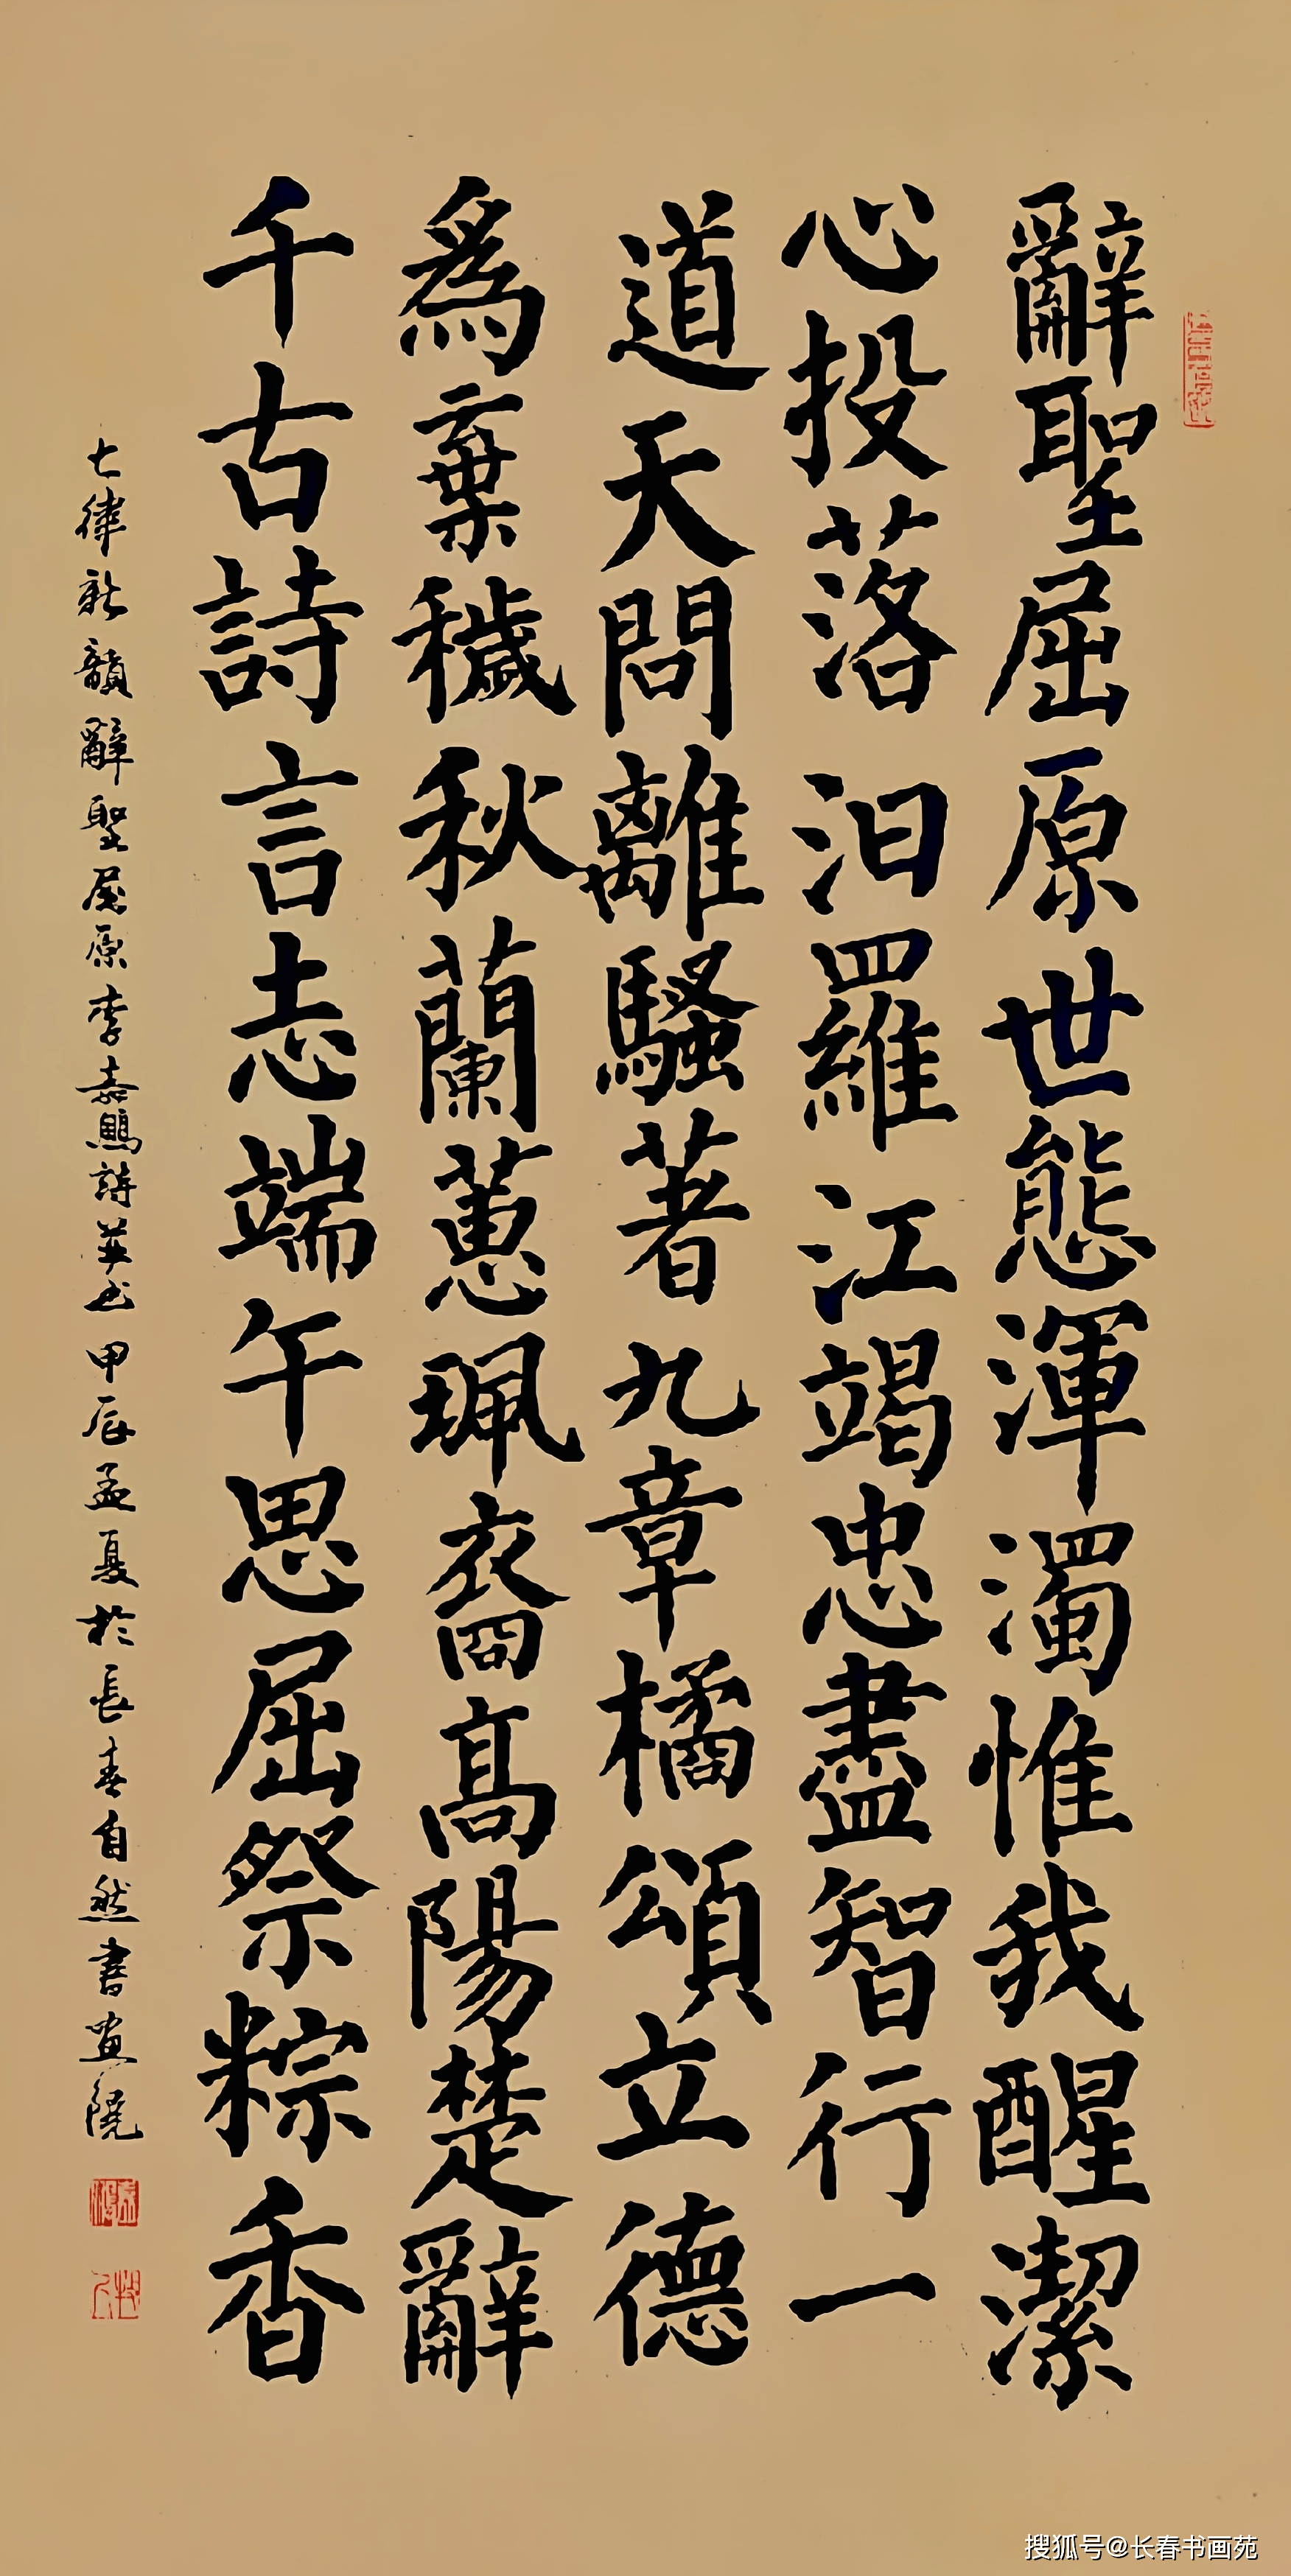 辭聖屈原世態渾濁惟我醒潔
心投落汨羅江竭忠盡智行一
道天問離騷著九章橘頌立德
為棄穢秋蘭蕙珮裔高陽楚辭
千古詩言志端午思屈祭粽香
七律新韻辭聖屈原李嘉鵬詩英书甲辰孟夏於長春自然書畫院
搜狐号@长春书画苑